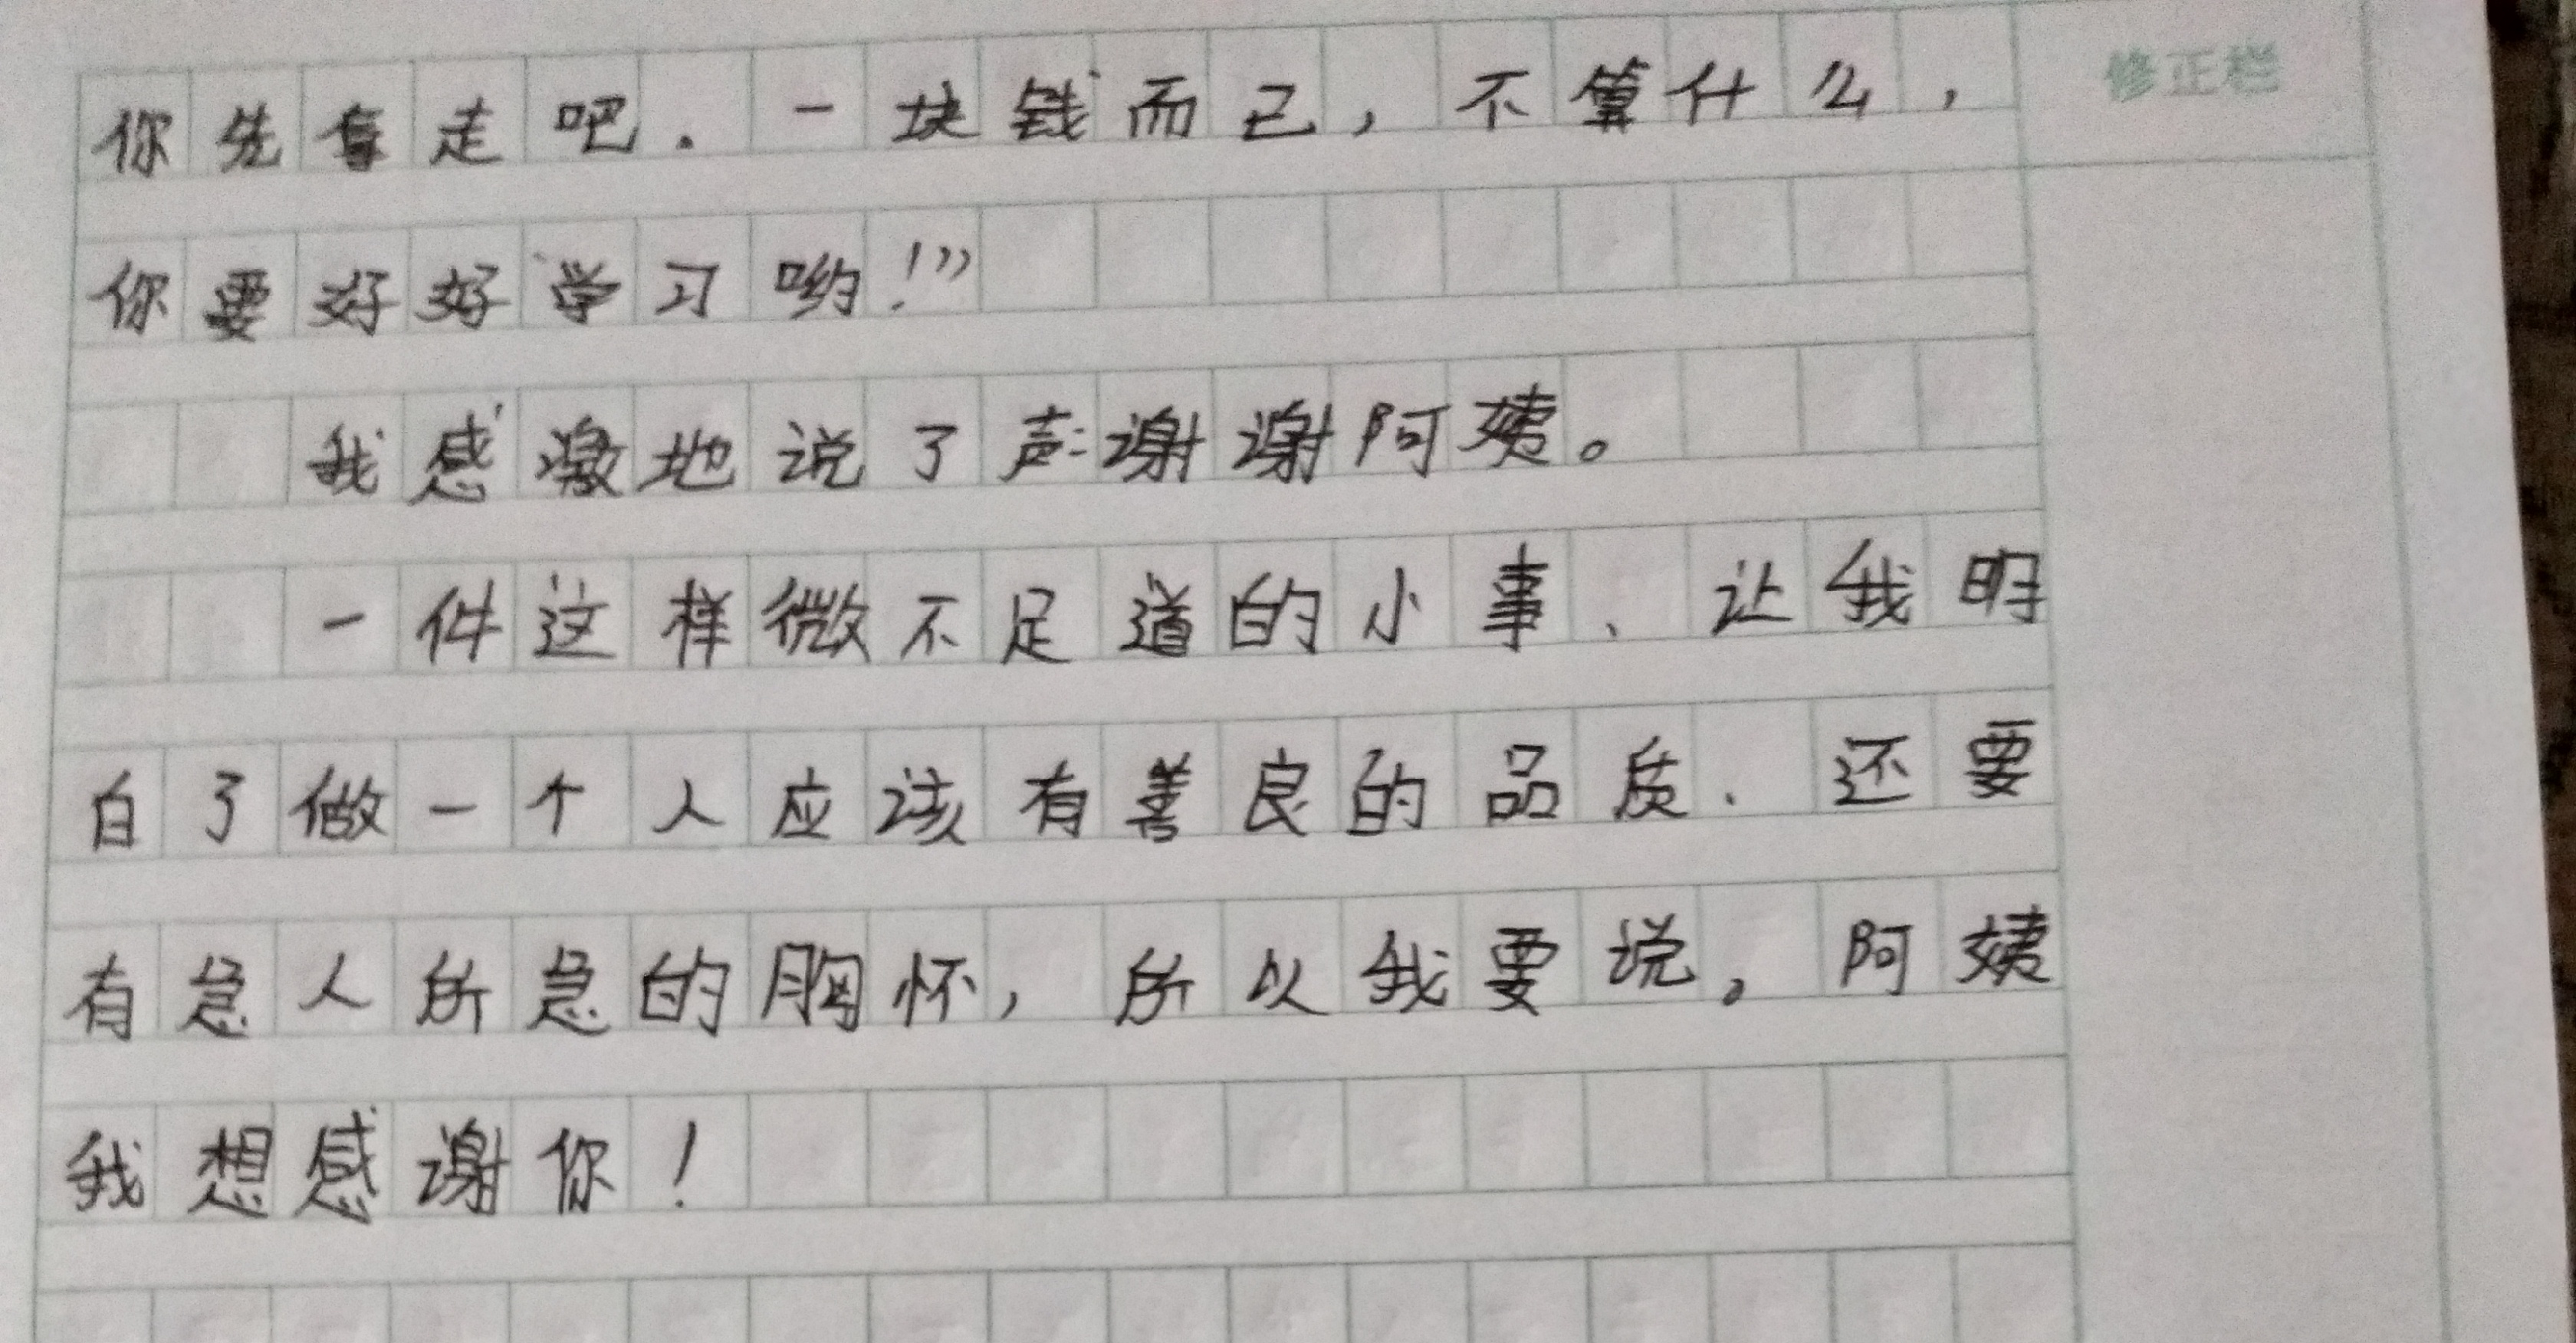 你先拿走吧．一块钱而已，不算什么， 修正栏
你要好好学习哟！”
我感激地说了声：谢谢阿姨。
一件这样微不足道的小事、让我明
白了做一个人应该有善良的品质．还要
有急人所急的胸怀，所以我要说。阿姨
我想感谢你！